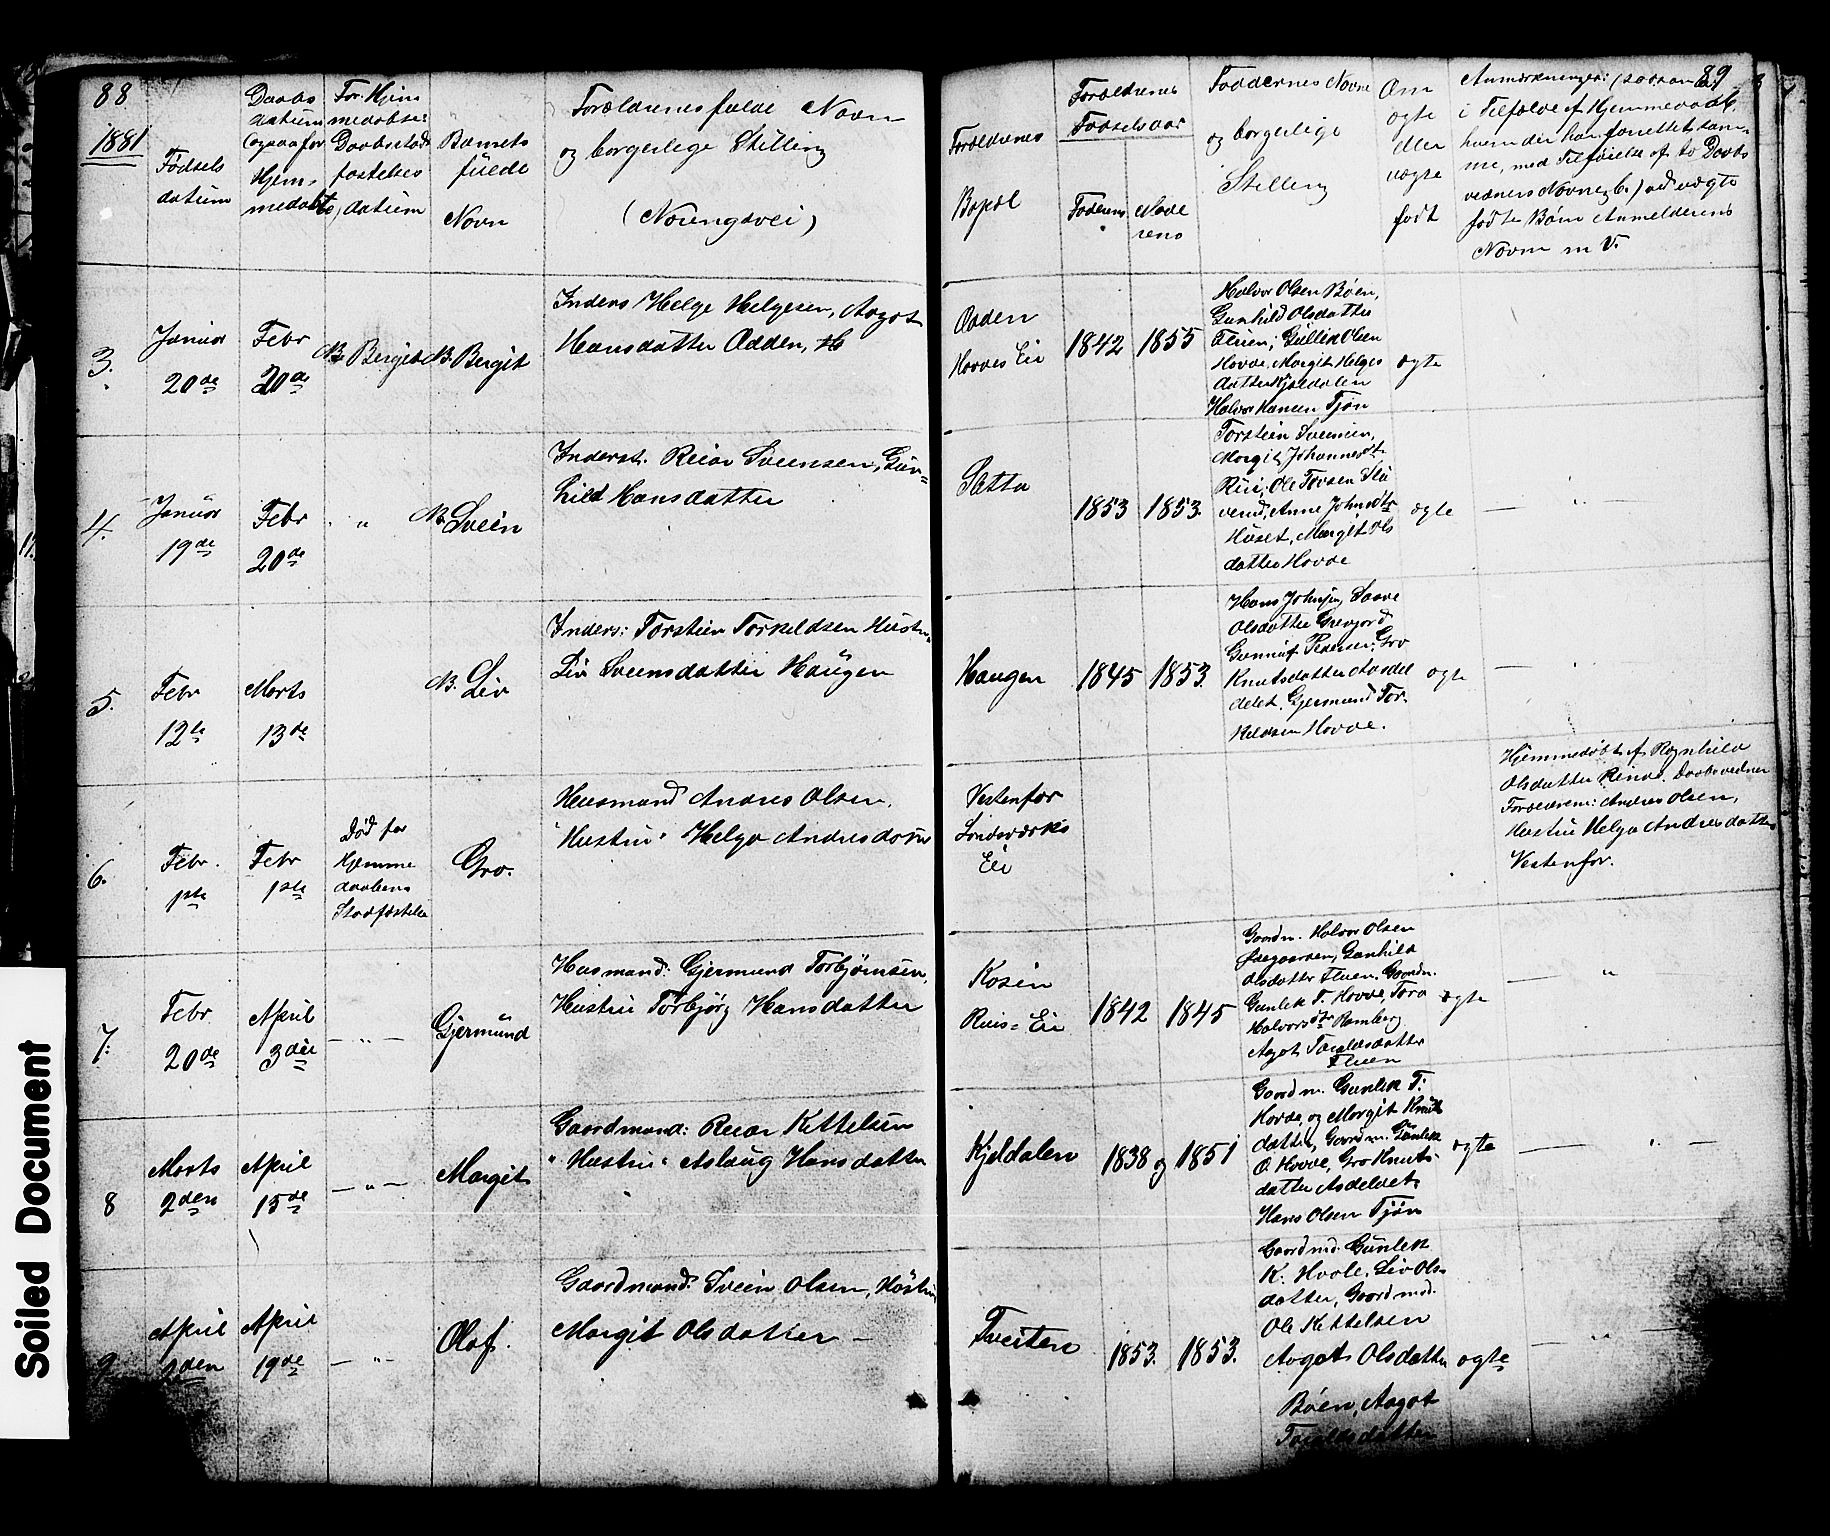 88
1881
Fødsels
datum
Daabs
datum
ogsaa for
Hjem-
medøbte
For Hjem
medøbte:
Daabsstad-
fæstelses
datum
Barnets
fulde
Navn
Forældrenes fulde Navn
og borgerlige Stilling
(Næringsvei)
Forældrenes
Bopæl
Forældrenes
Fødselsaar
Faderens
Mode
rens
Faddernes Navne
og borgerlige
Stilling
Om
ægte
eller
uægte
født
89
Anmærkninger: (saasom
i Tilfælde af Hjemmedaab,
hvem der har forrettet sam-
me, med Tilføielse af to Daabs
vidners Navne &c.) ved uægte
fødte Børn Anmelderens
Navn m V.
3.
Januar
20de
Febr
20de
Bergit
Inders Helge Helgesen, Aagot
Hansdatter Odden,
Odden
Hovdes Eie
1842
1855
Halvor Olsen Bøen,
Gunhild Olsdatter
Fluen, Gullik Olsen
Hovde, Margit Helges
datter Kjeldalen
Halvor Hansen Tjøn
ægte
4.
Januar
19de
Febr
20de
Svein
Inderst. Reiar Sveinsen, Gun-
hild Hansdatter
Satta
1853
1853.
Torstein Sveinsen,
Margit Johannesdt.
Rui, Ole Tovsen
Anne Johnsdtr
Huset, Margit Ols
datter Hovde
ægte
5.
Febr
12te
Marts
13de
Liv
Inders: Torstein Torkildsen Hustru
Liv Sveinsdatter Haugen
Haugen
1845
1853.
Hans Johnsen, Saave
Olsdatter Grovjord
Gunnuf Pedersen, Gro
Knutsdatter Aasdel
delet. Gjermund Tor-
kildsen Hovde.
ægte
6.
Febr.
1ste
Febr
1ste
Død før
Hjemme
daabens
Stadfæstelse
Gro.
Husmand Andres Olsen.
Hustru Helga Andresdatter
Vestenfor
Sondeværks
Eie
Hjemmedøbt af Ragnhild
Olsdatter Daabsvidner
Forældrene: Andres Olsen,
Hustru Helga Andresdatter
Vestenfor.
7.
Febr
20de
April
3die
Gjermund
Husmand: Gjermund Torbjørnsen,
Hustru Torbjørg Hansdatter
Kosin
Ruis= Eie
1842
1845
Gaardm. Halvor Olsen
Gunhild
Olsdatter Fluen. Gaardm.
Gunlek T. Hovde, Tora
Halvorsdtr Ramberg
Aagot Taraldsdatter
Fluen
ægte
8
Marts
2den
April
15de
Margit
Gaardmand: Reiar Kittelsen
Hustru Aslaug Hansdatter
Kjeldalen
1838 og
1851
Gaardm. Gunlek T.
Hovde, og Margit Knuts
datter, Gaardm. Gunlek
O. Hovde, Gro Knuts-
datter Asdelet.
Hans Olsen Tjøn
ægte
9
April
2den
April
19de
Olaf.
Gaardmand: Svein Olsen, Hustru
Margit Olsdatter
Tveiten
1853.
1853.
Gaardmd. Gunlek
K. Hvale, Liv Ols
datter, Gaardmd.
Ole Kittelsen
Aagot Olsdatter
Bøen, Aagot
Taraldsdatter
ægte
Soiled Document